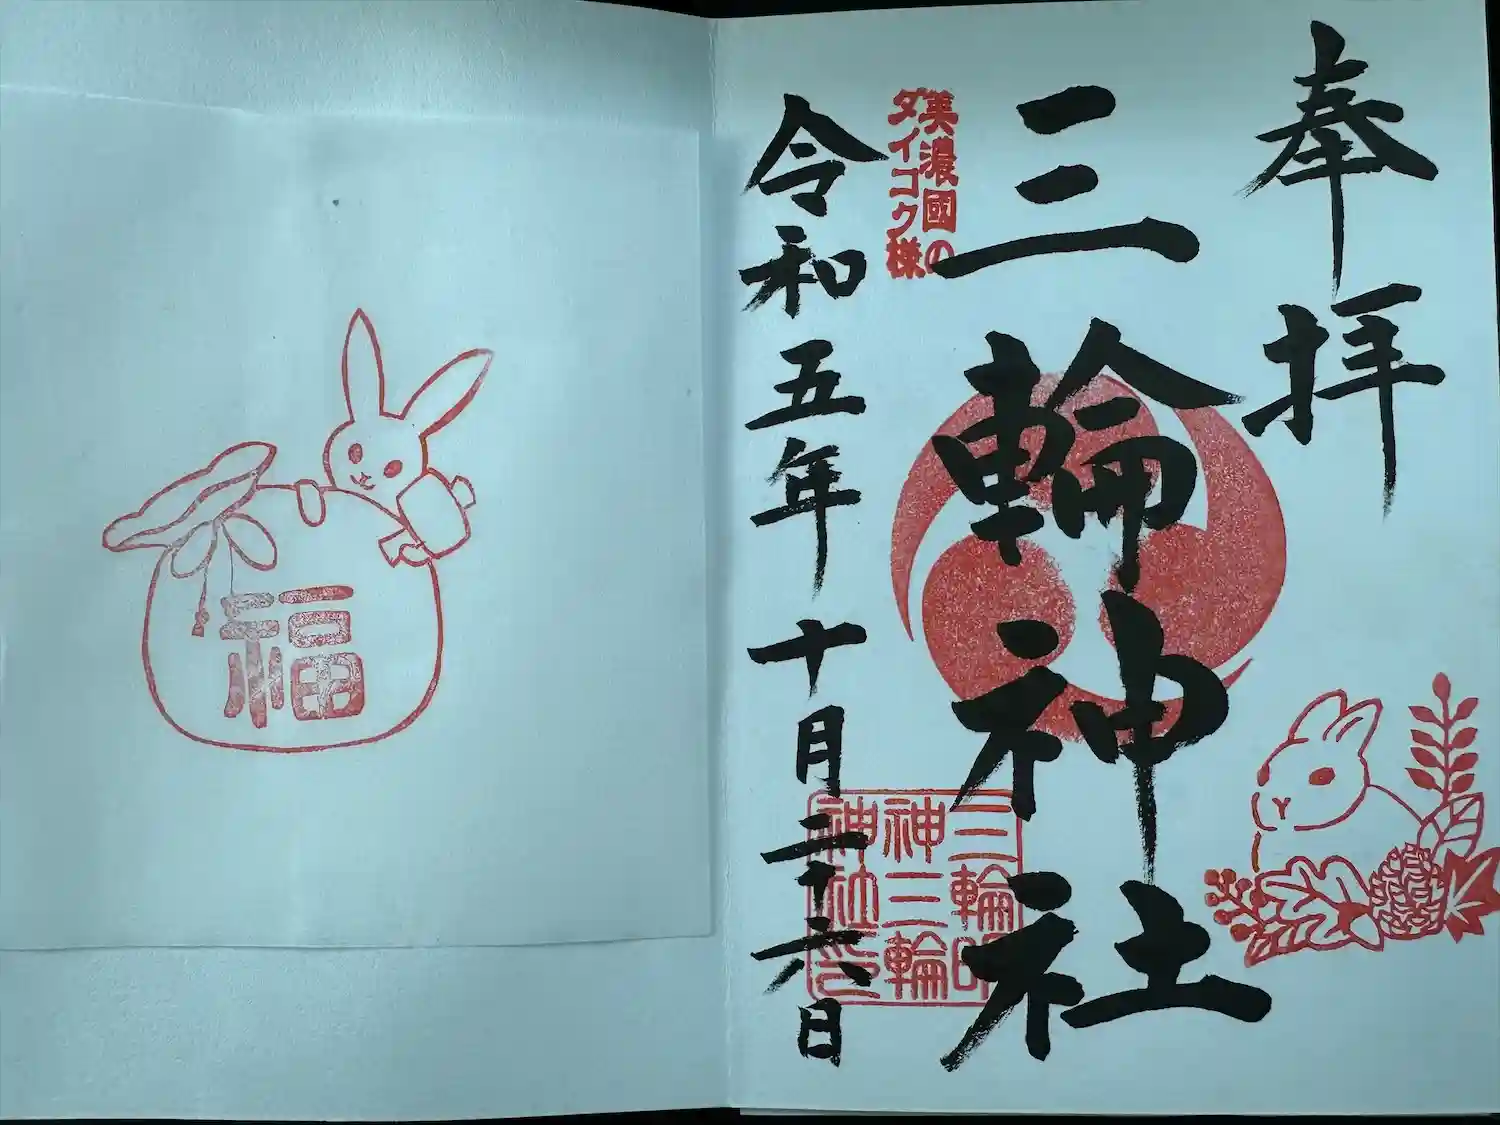 奉拝
三輪神社
美濃國の
ダイコク様
令和五年十月二十六日
三輪明
神三輪
神社印
福